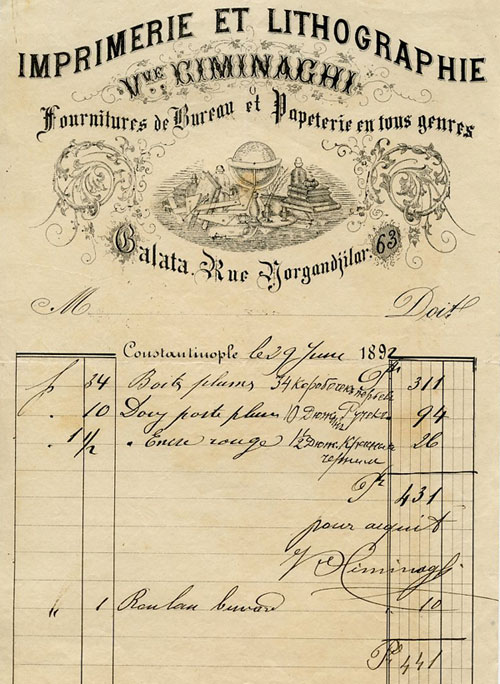 IMPRIMERIE ET LITHOGRAPHIE
Vve. CIMINAGHI
Fournitures de Bureau et Papeterie en tous genres
Galata. Rue Yorgandjilar. 63
M Doit
Constantinople le 29 Juni 1892
34 Boits plums 34 311
10 Douz porte plum 10 Дюж. 94
1 1/2 Encre rouge 1 1/2 Дюж. чернил 26
431
pour acquit
Vve Ciminaghi
" 1 Rouleau buvard 10
441